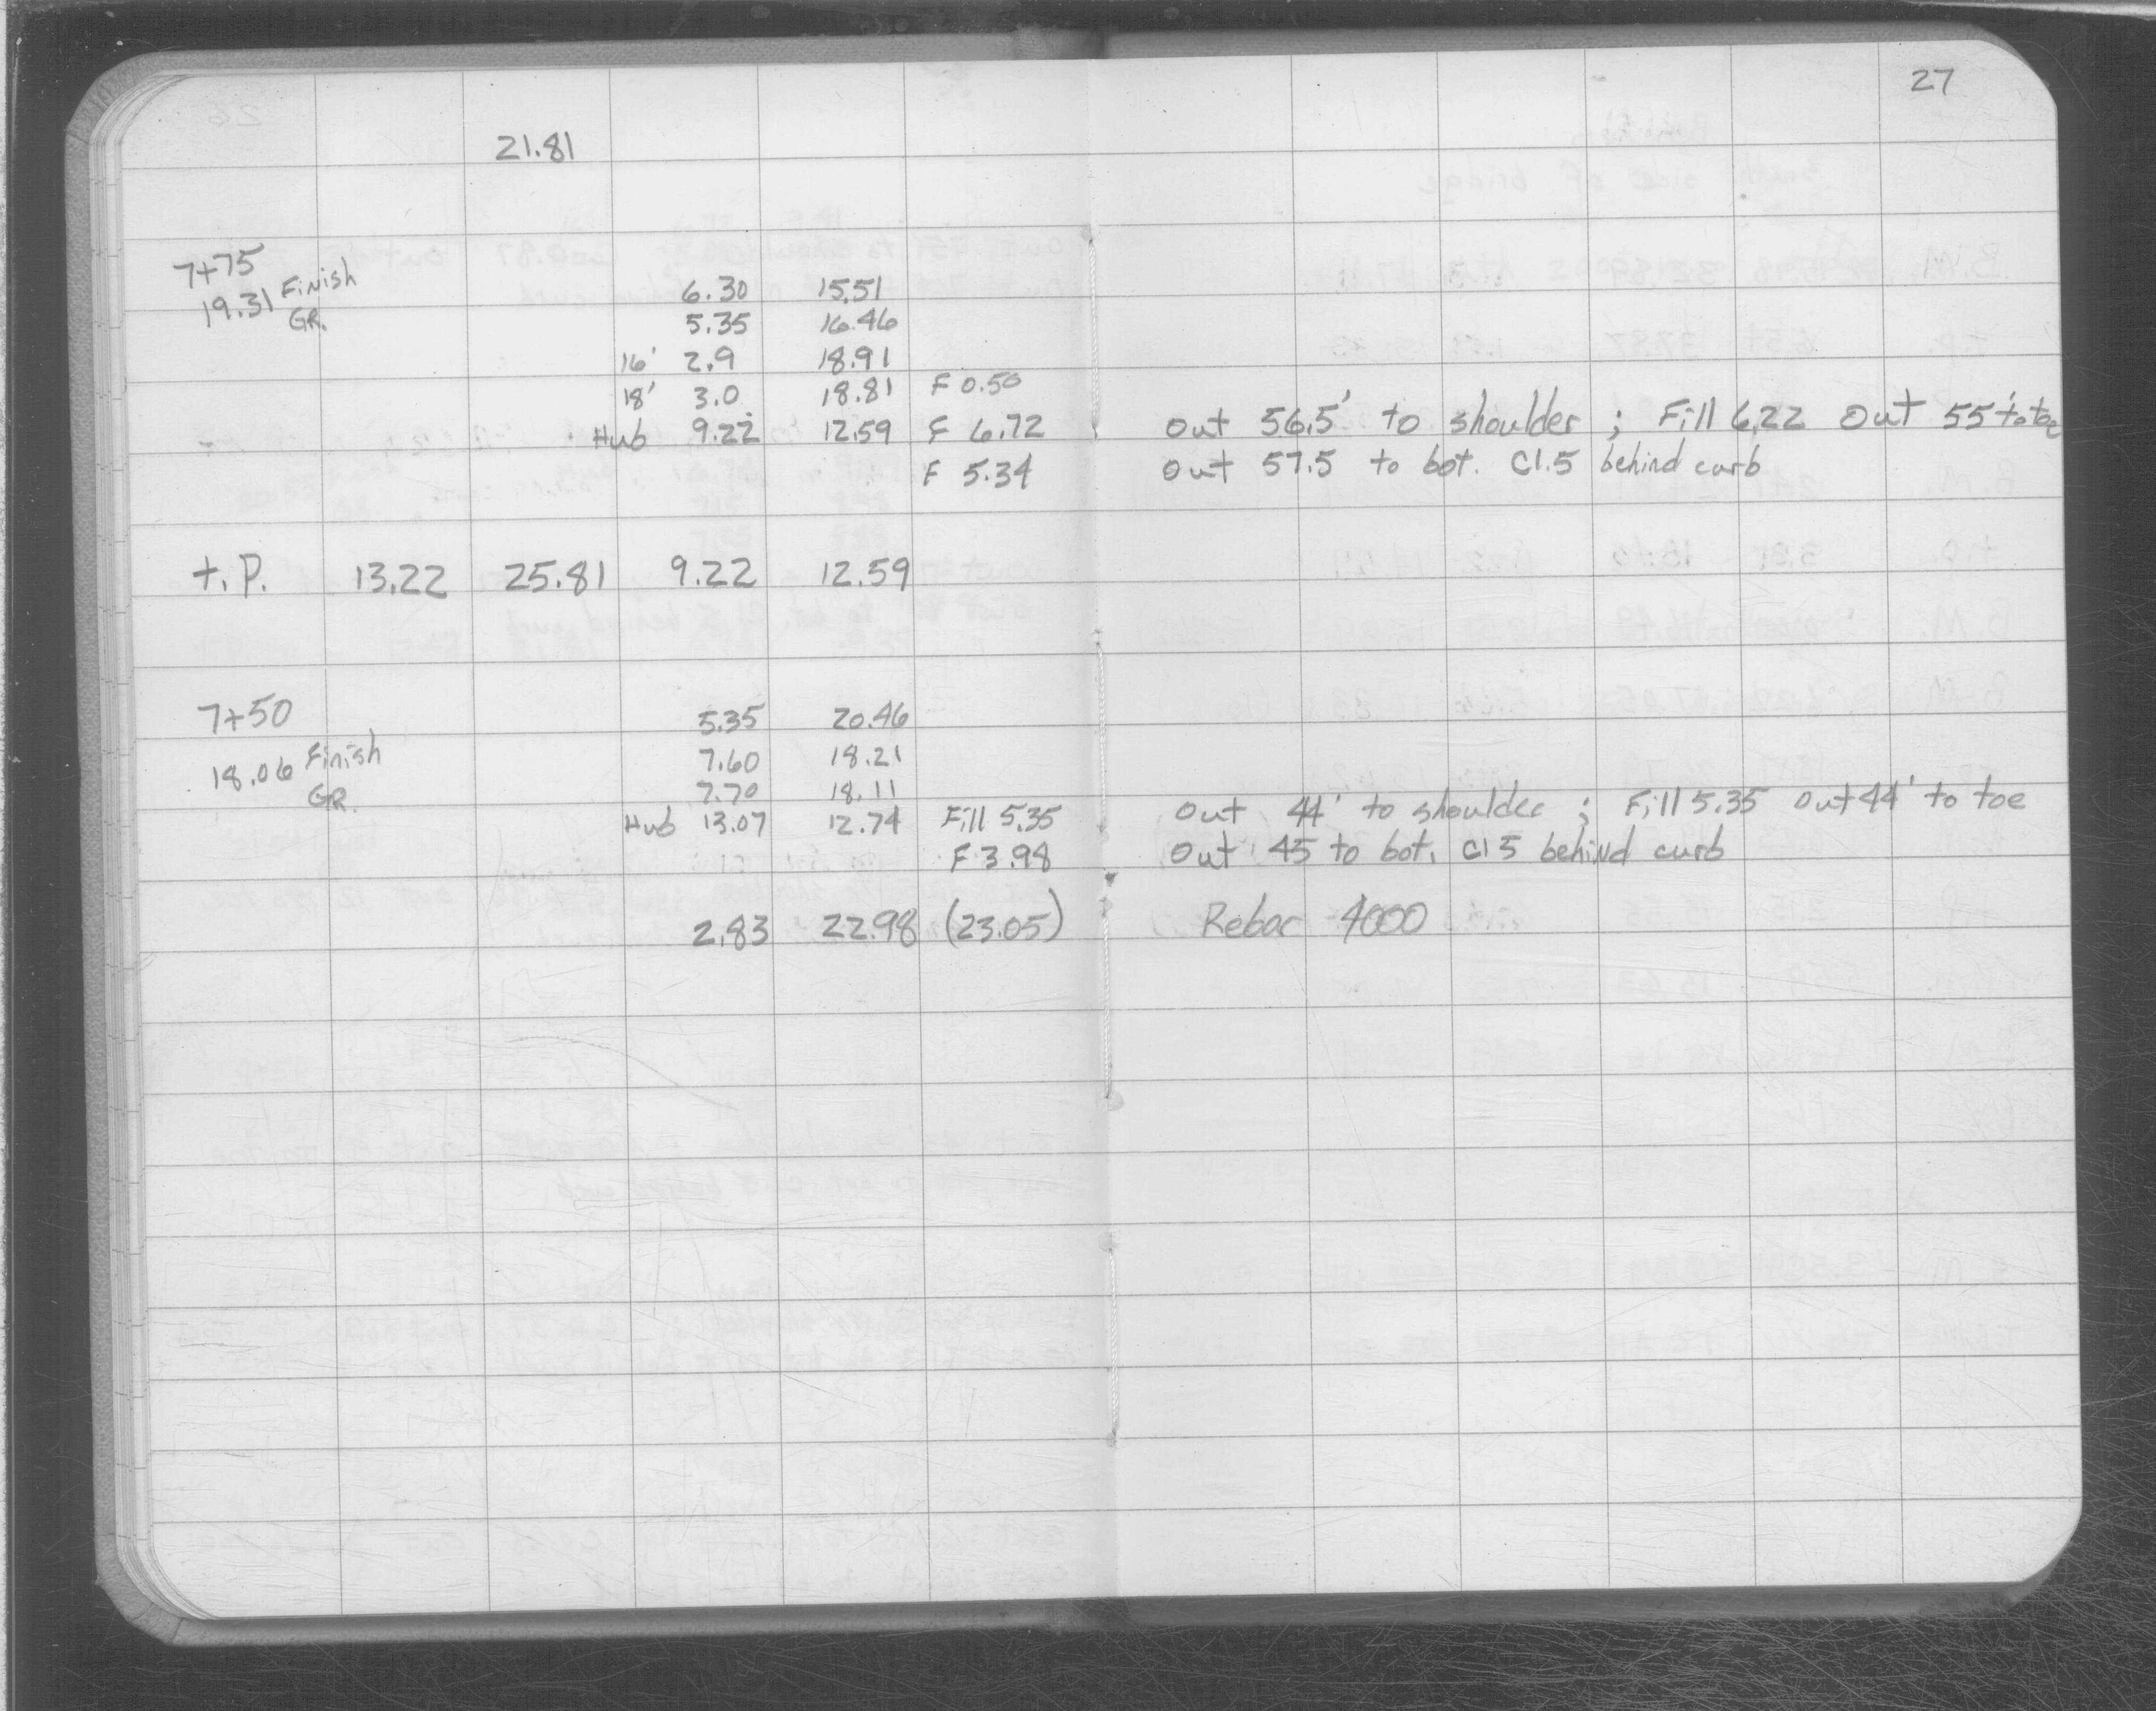 27
21.81
7+75
19.31 Finish GR.
6.30 15.51
5.35 16.46
16' 2.9 18.91
18' 3.0 18.81 F 0.50
Hub 9.22 12.59 F 6.72 Out 56.5' to shoulder ; Fill 6.22 Out 55' to toe
F 5.34 Out 57.5 to bot. Cl.5 behind curb
t.P. 13.22 25.81 9.22 12.59
7+50
18.06 Finish GR.
5.35 20.46
7.60 18.21
7.70 18.11
Hub 13.07 12.74 Fill 5.35 Out 44' to shoulder ; Fill 5.35 Out 44' to toe
F 3.98 Out 45 to bot. Cl 5 behind curb
2.83 22.98 (23.05) Rebar 4000